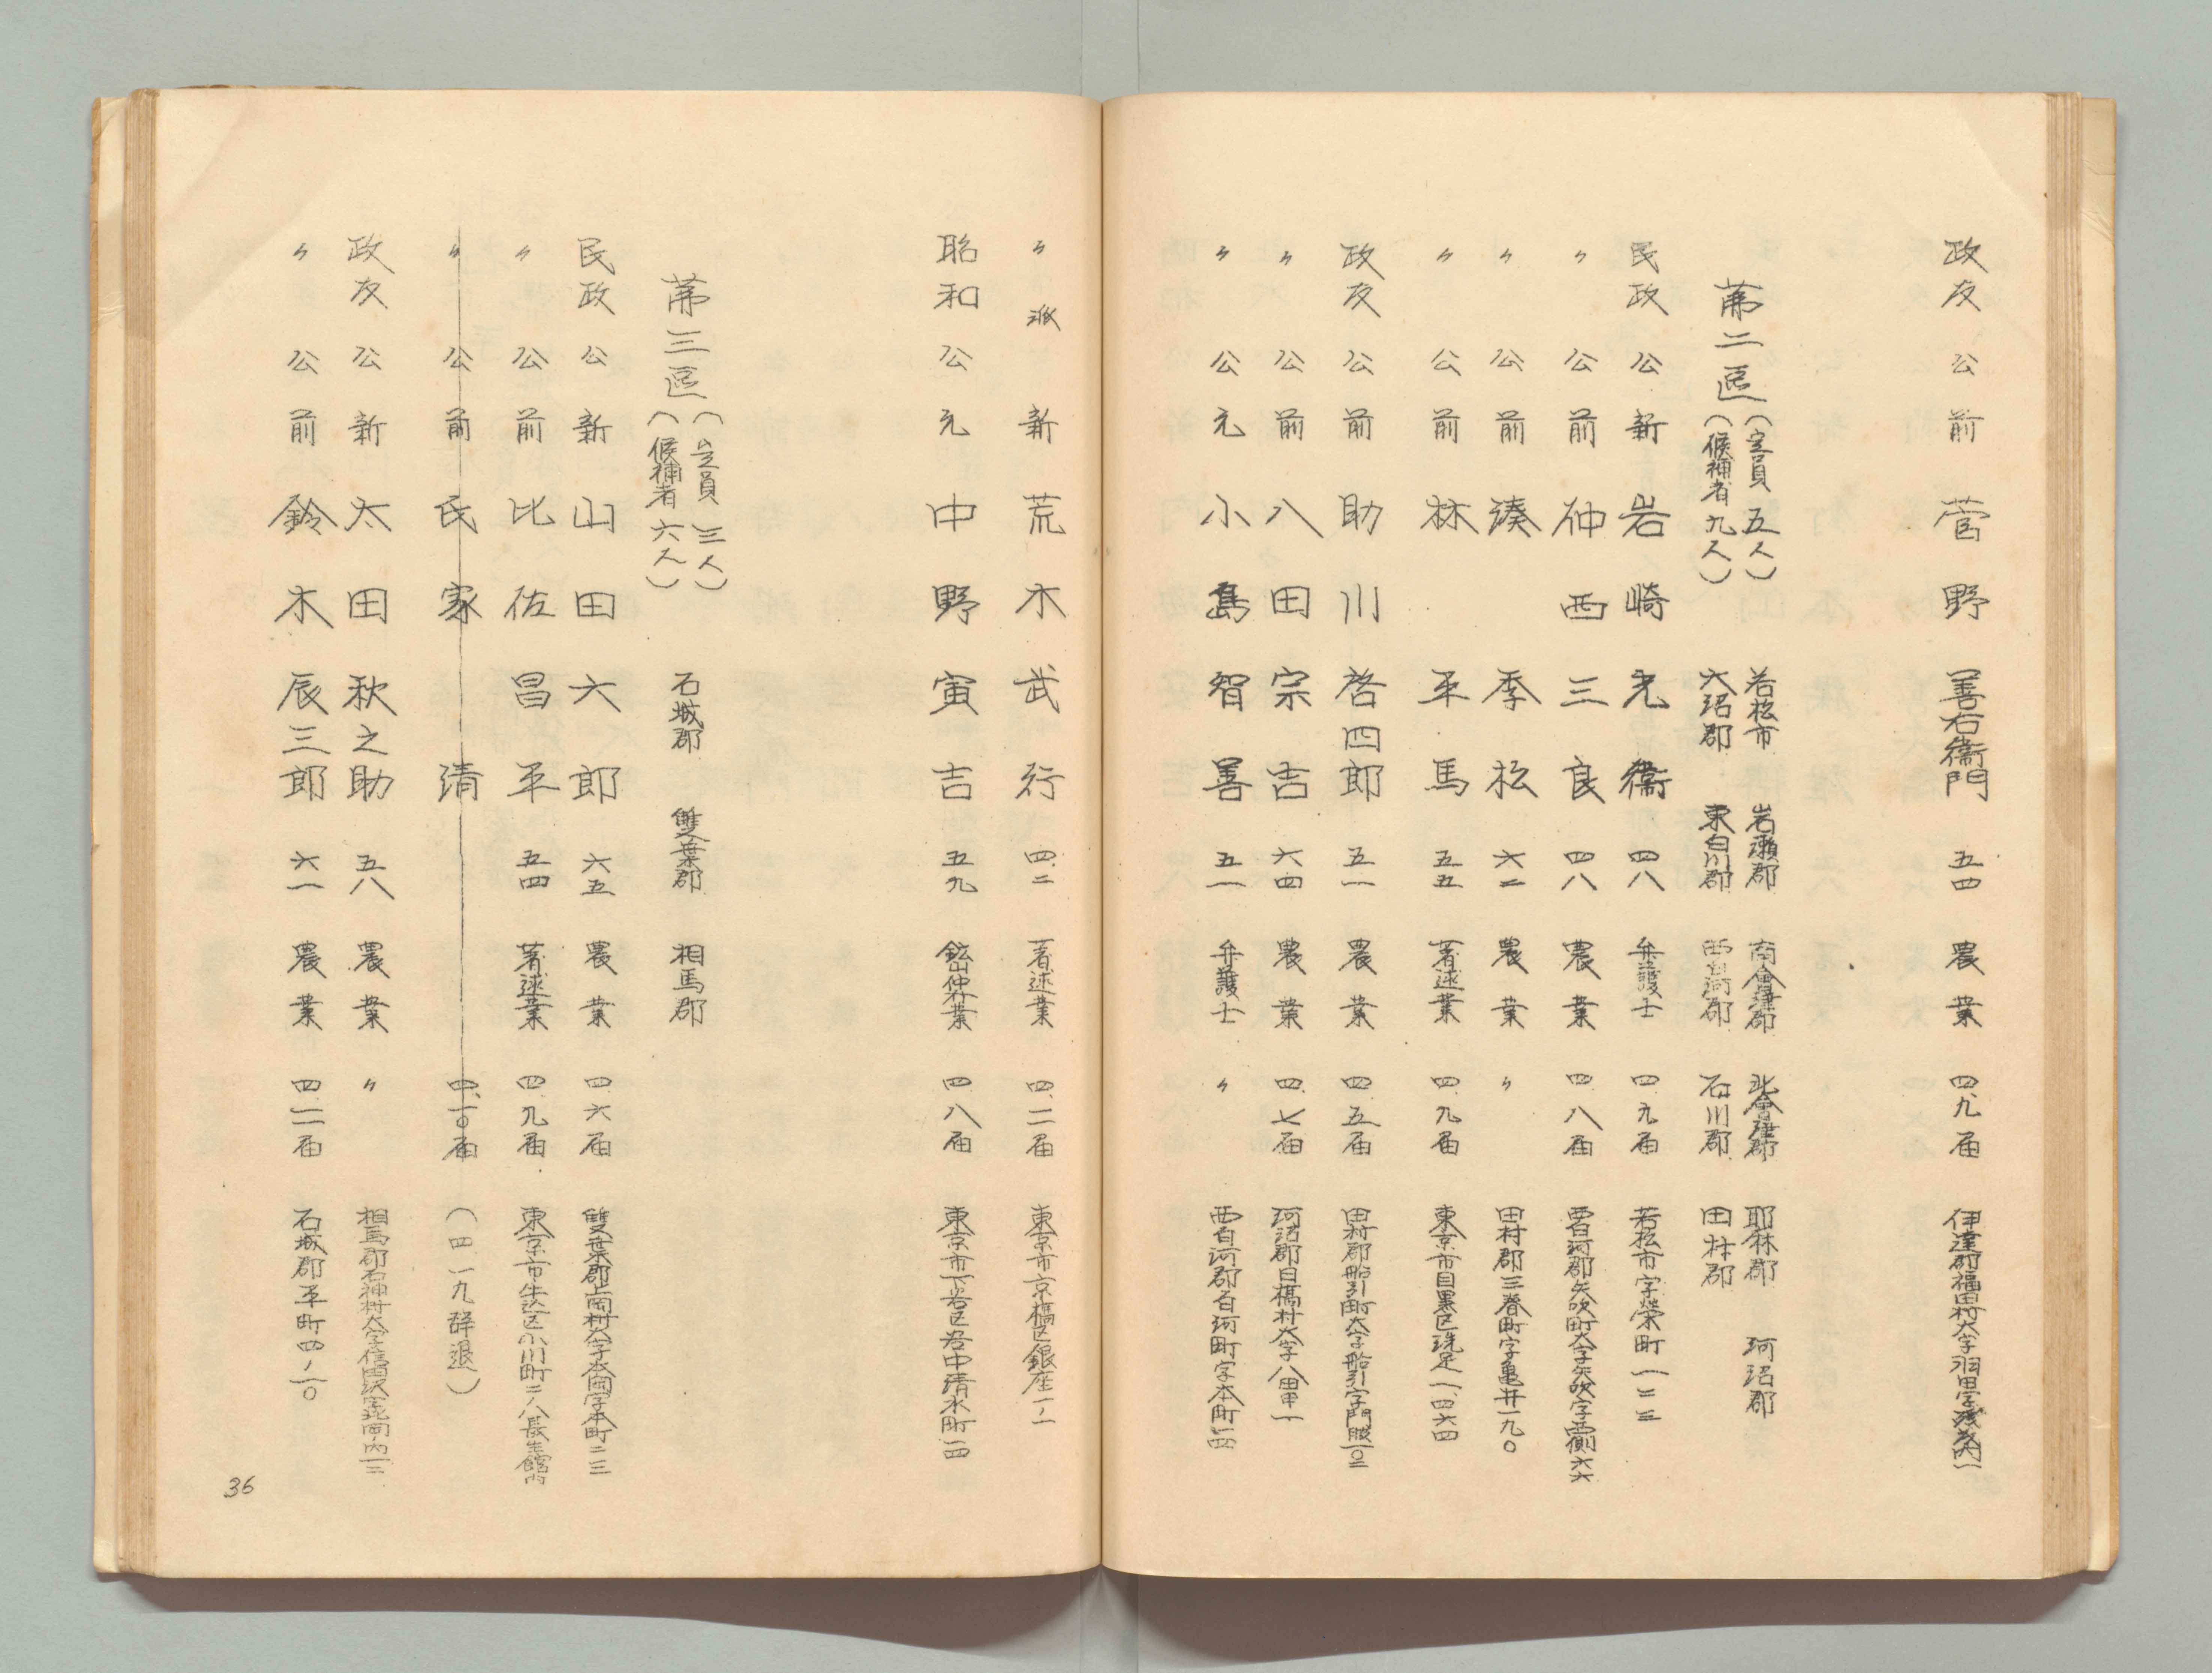 政友 公 前 菅野善右衞門 五四 農業 四、九届 伊達郡福田村大字羽田字
第二區(定員 五人)(候補者 九人)
若松市 岩瀬郡 南會津郡 北會津郡 耶麻郡 河沼郡
大沼郡 東白川郡 西白河郡 石川郡 田村郡
民政 公 新 岩崎光衞 四八 弁護士 四、九届 若松市字栄町一二三
〃 公 前 仲西三良 四八 農業 四、八届 西白河郡矢吹町大字矢吹字西側六六
〃 公 前 湊季松 六二 農業 〃 田村郡三春町字亀井一九〇
〃 公 前 林平馬 五五 著述業 四、九届 東京市目黒区洗足一、四六四
政友 公 前 助川啓四郎 五一 農業 四、五届 田村郡船引町大字船引字門
〃 公 前 八田宗吉 六四 農業 四、七届 河沼郡日橋村大字八田甲一
〃 公 元 小島智善 五一 弁護士 〃 西白河郡白河町字本町一四
〃 派 新 荒木武行 四二 著述業 四、二届 東京市京橋区銀座一ノ一
昭和 公 元 中野寅吉 五九 鉱山仲介業 四、八届 東京市下谷区谷中清水町一四
第三區(定員 三人)(候補者 六人)
石城郡 雙葉郡 相馬郡
民政 公 新 山田六郎 六五 農業 四、六届 雙葉郡上岡村大字本岡字本町二三
〃 公 前 比佐昌平 五四 著述業 四、九届 東京市牛込区小川町二ノ八長生館内
〃 公 前 氏家清 四、一〇届 (四、一九辞退)
政友 公 新 太田秋之助 五八 農業 〃 相馬郡石神村大字信田沢字
〃 公 前 鈴木辰三郎 六一 農業 四、一一届 石城郡平町四ノ一〇
36